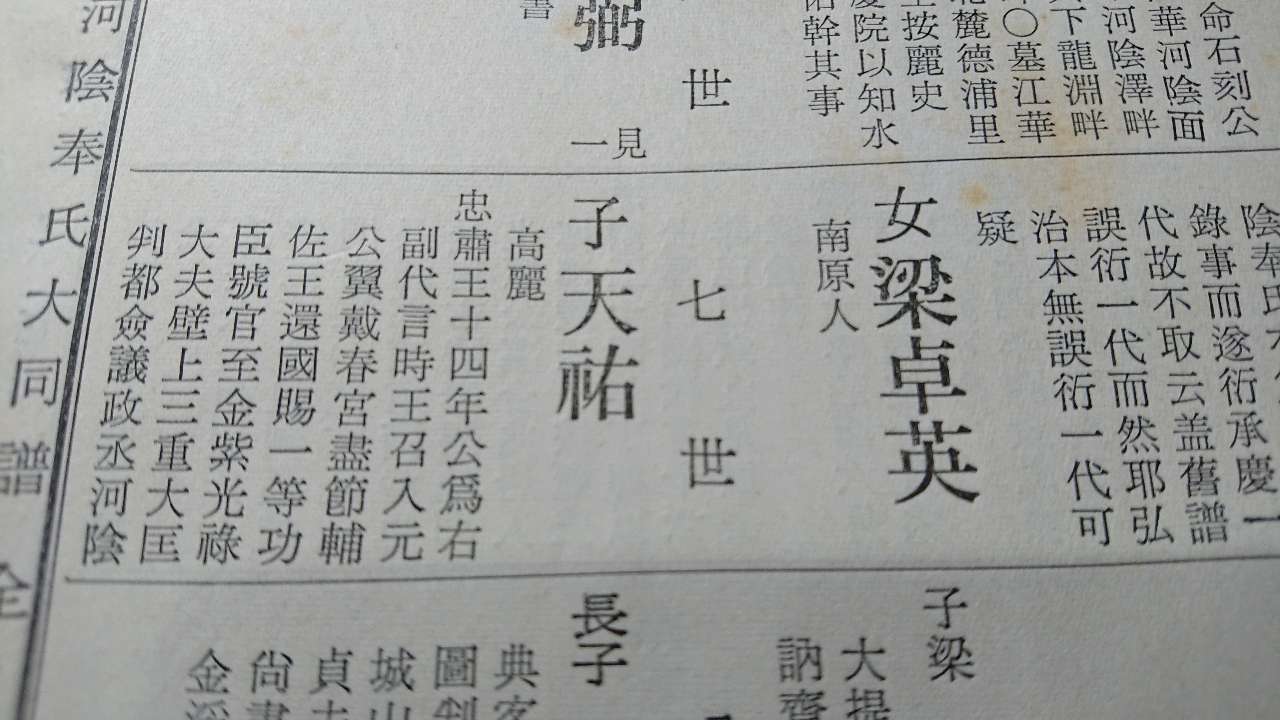 命石刻公
華河陰面
河陰澤畔
下龍淵畔
〇墓江華
麓德浦里
按麗史
慶院以知水
幹其事
世
見一
弼
書
陰奉氏
錄事而遂衍承慶一
代故不取云盖舊譜
誤衍一代而然耶弘
治本無誤衍一代可
疑
女梁卓英
南原人
七世
子天祐
高麗
忠肅王十四年公爲右
副代言時王召入元
公翼戴春宮盡節輔
佐王還國賜一等功
臣號官至金紫光祿
大夫壁上三重大匡
判都僉議政丞河陰
子梁
大提
訥齊
長子
典客
圖判
城山
貞夫
尙書
金溪
河陰奉氏大同譜 全